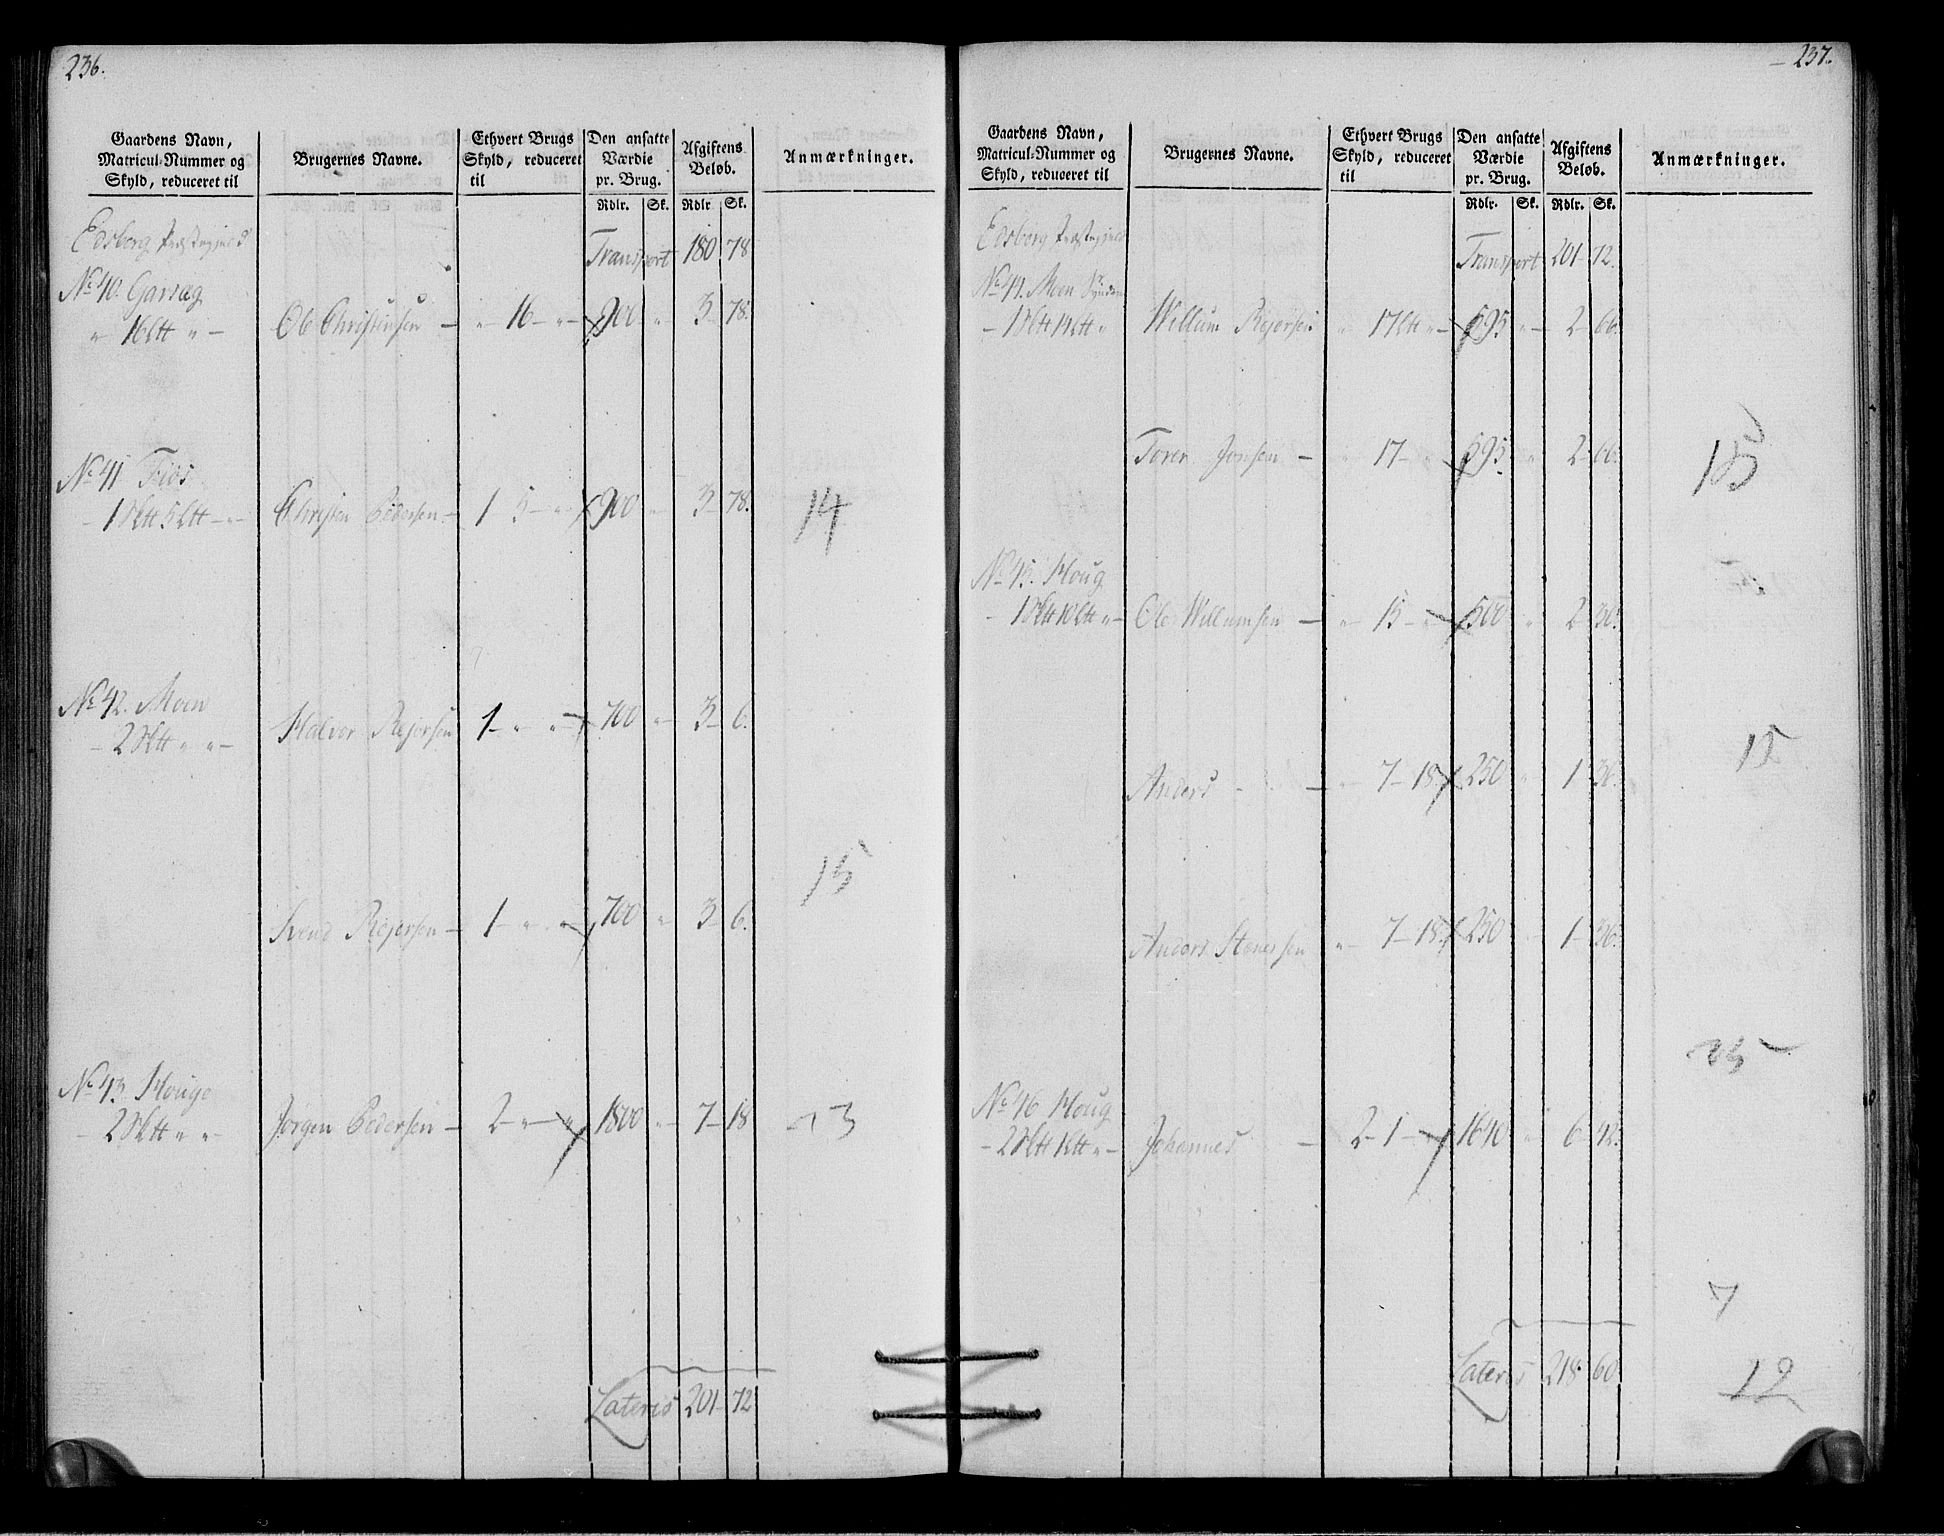 236.
Gaardens Navn, Matricul-Nummer og Skyld, reduceret til
Brugernes Navne.
Ethvert Brugs Skyld, reduceret til
Den ansatte Værdie pr. Brug.
Afgiftens Beløb.
Anmærkninger.
Rdlr. Sk. Rdlr Sk.
Edsberg Præstegjeld
Transport 180 78
No 40. Garvæg
" 16 Ltt " — Ole Christensen — " 16 — " — 900 " 3 — 78.
No 41 Fios
— 1 Sktt 5 Ltt — " Christen Pedersen — 1 — 5 — " 900 " 3 — 78.
14
No 42. Moen
— 2 Sktt " " — Halvor Rejersen 1 — " " — 700 " 3 — 6.
15
Svend Rejersen — 1 — " " — 700 " 3 — 6.
No 43. Houge
— 2 Sktt " " — Jørgen Pedersen — 2 — " — " 1800 " 7 — 18
13
Lateris 201 — 72
237.
Gaardens Navn, Matricul-Nummer og Skyld, reduceret til
Brugernes Navne.
Ethvert Brugs Skyld, reduceret til
Den ansatte Værdie pr. Brug.
Afgiftens Beløb.
Anmærkninger.
Rdlr. Sk. Rdlr. Sk.
Edsberg Præstegjeld
Transport 201 — 72.
No 44. Moen
— 1 Sktt 14 Ltt " Willum Rejersen " 17 Ltt " — 595 " — 2 — 66.
Toren Jonsen — " 17 — " 595 " 2 — 66.
15
No 45. Houg
— 1 Sktt 10 Ltt " — Ole Willumsen — " 15 — " 500 " 2 — 36.
15
Anders — " 7 — 18 250 " 1 — 36.
Anders Stenersen " 7 — 18 250 " 1 — 36.
No 46 Houg
— 2 Sktt 1 Ltt " — Johannes — 2 — 1 — " 1640 " 6 — 42.
7
Lateris 218. 60
12